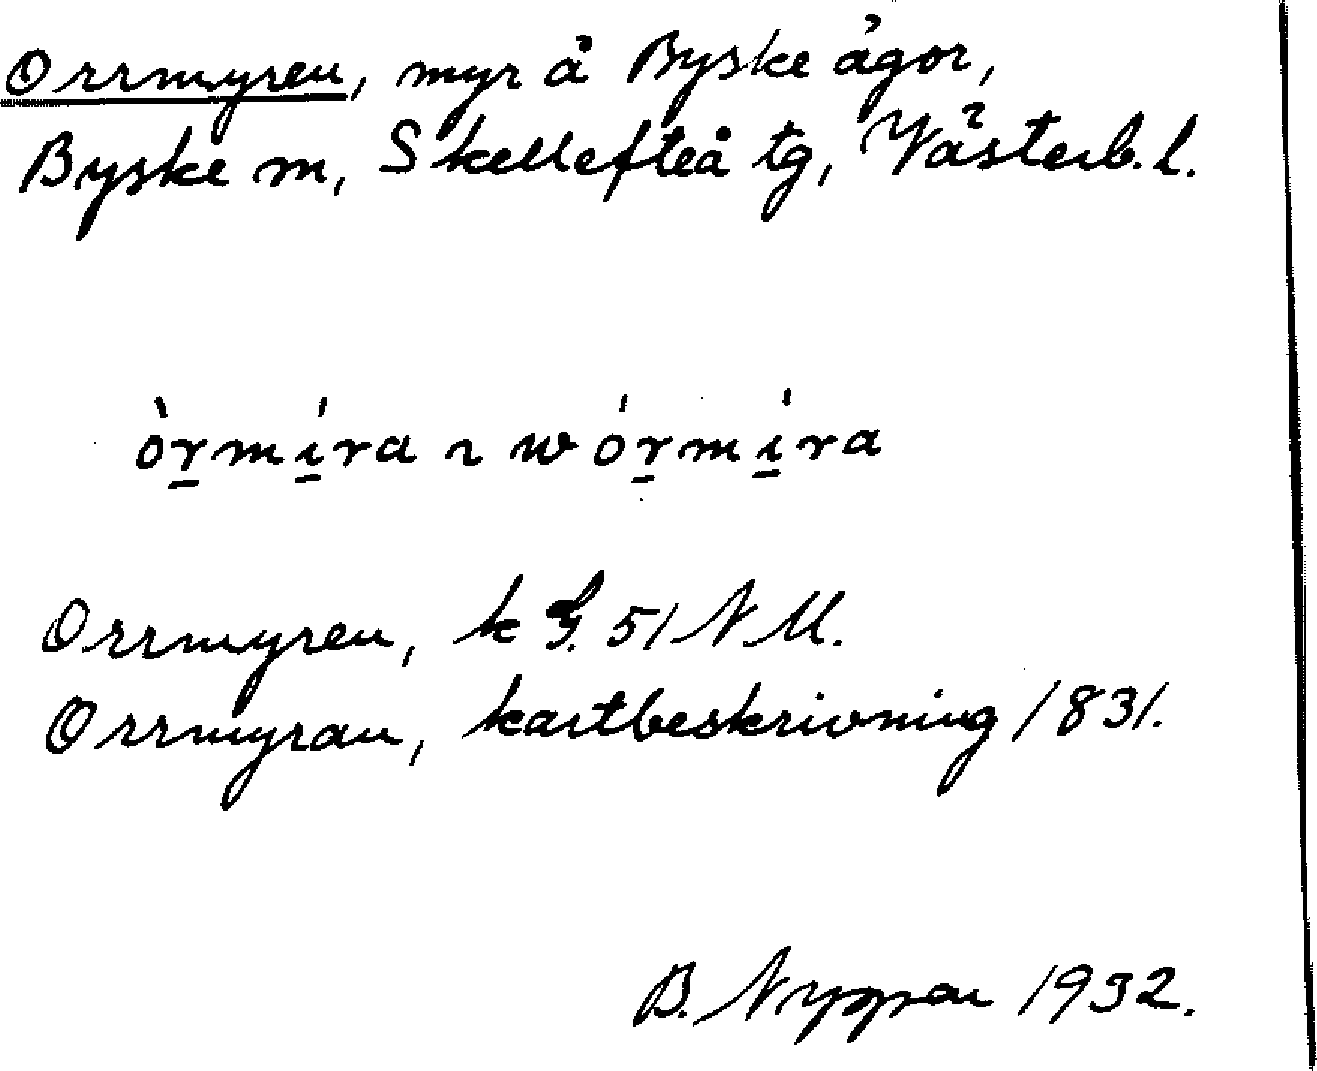 Orrmyren, myr å Byske ägor,
Byske sn, Skellefteå tg, Västerb. l.
òr̲mí̲ra ~ wór̲mí̲ra
Orrmyren, k 51 N M.
Orrmyran, kartbeskrivning 1831.
B. 1932.